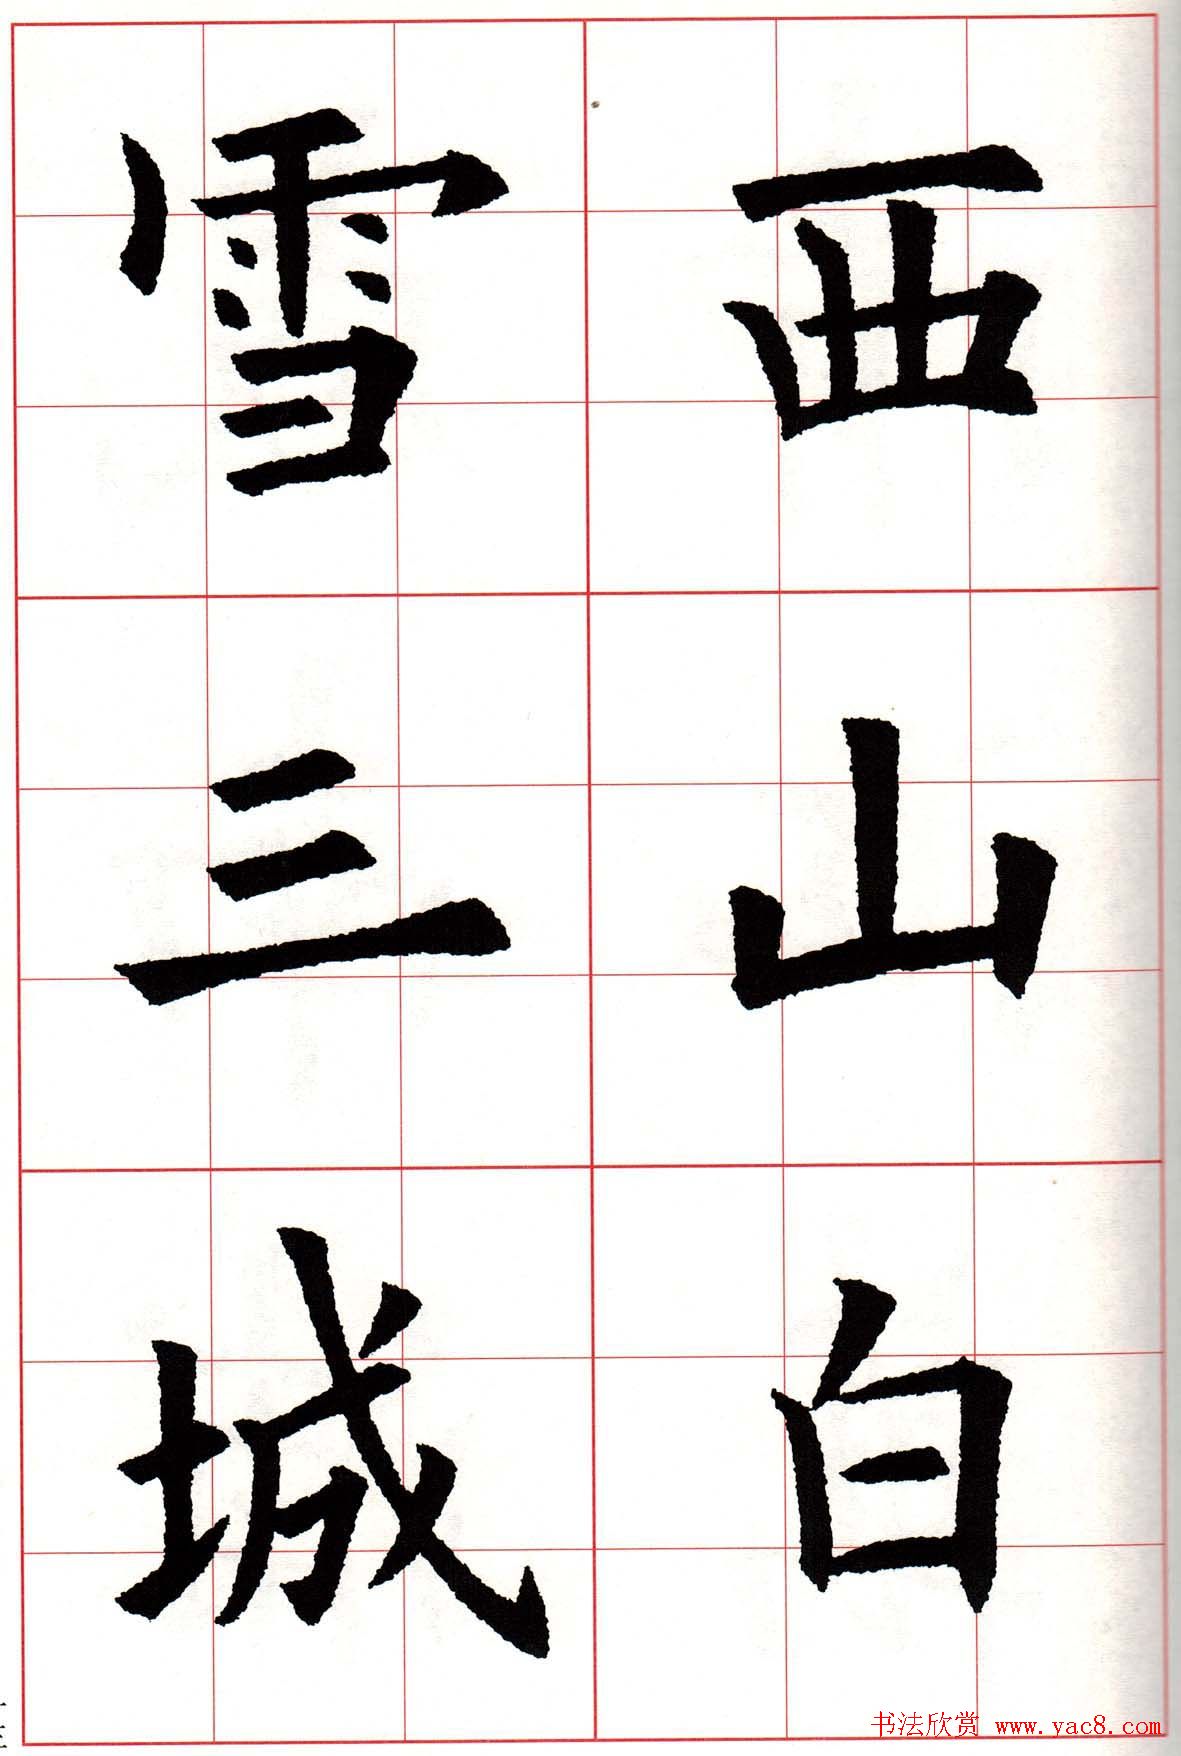 西山白
雪三城
书法欣赏 www.yac8.com